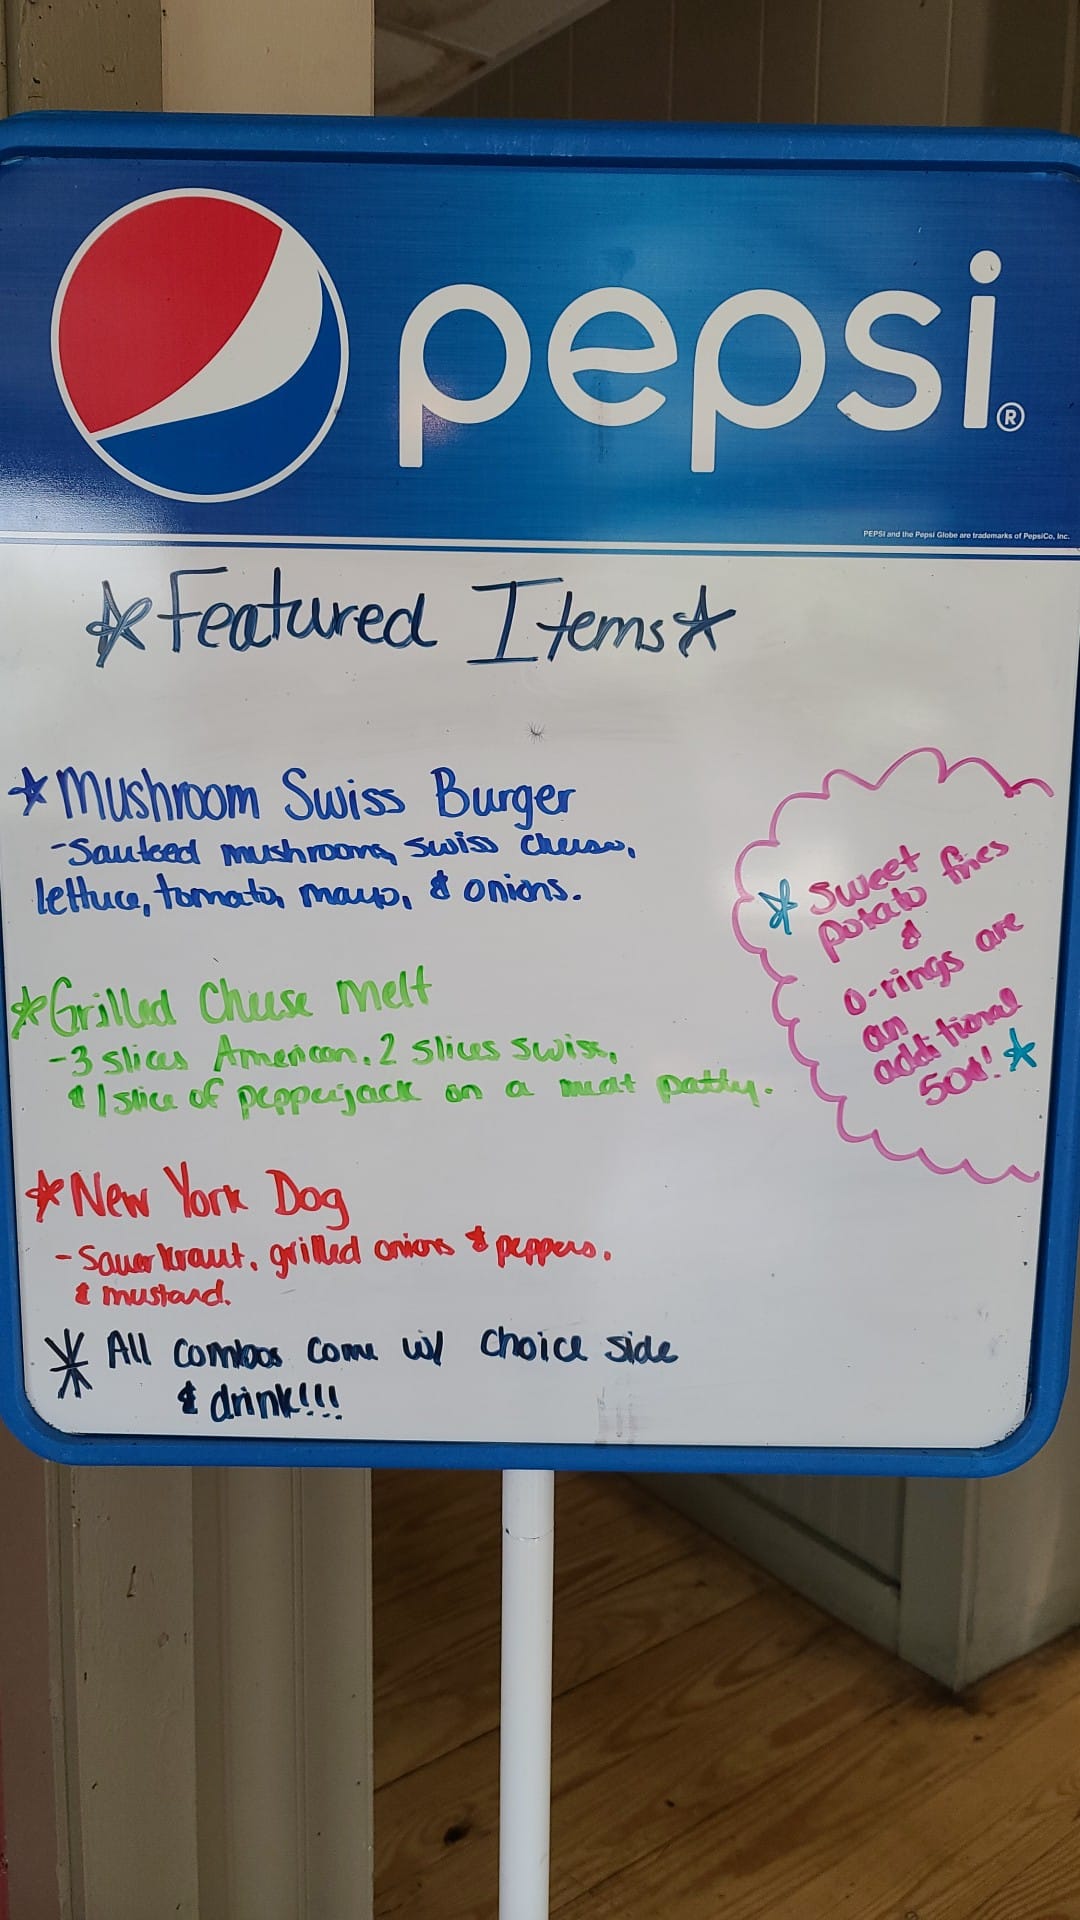 pepsi®
PEPSI and the Pepsi Globe are trademarks of PepsiCo, Inc.
Featured Items
Mushroom Swiss Burger
-Sauteed mushrooms, swiss cheese,
lettuce, tomato, mayo, & onions.
Grilled Cheese Melt
-3 slices American, 2 slices swiss,
& 1 slice of pepperjack on a meat patty.
New York Dog
-Sauerkraut, grilled onions & peppers,
& mustard.
All combos come w/ choice side
& drink!!!
sweet
potato fries
&
o-rings are
an
additional
50¢!